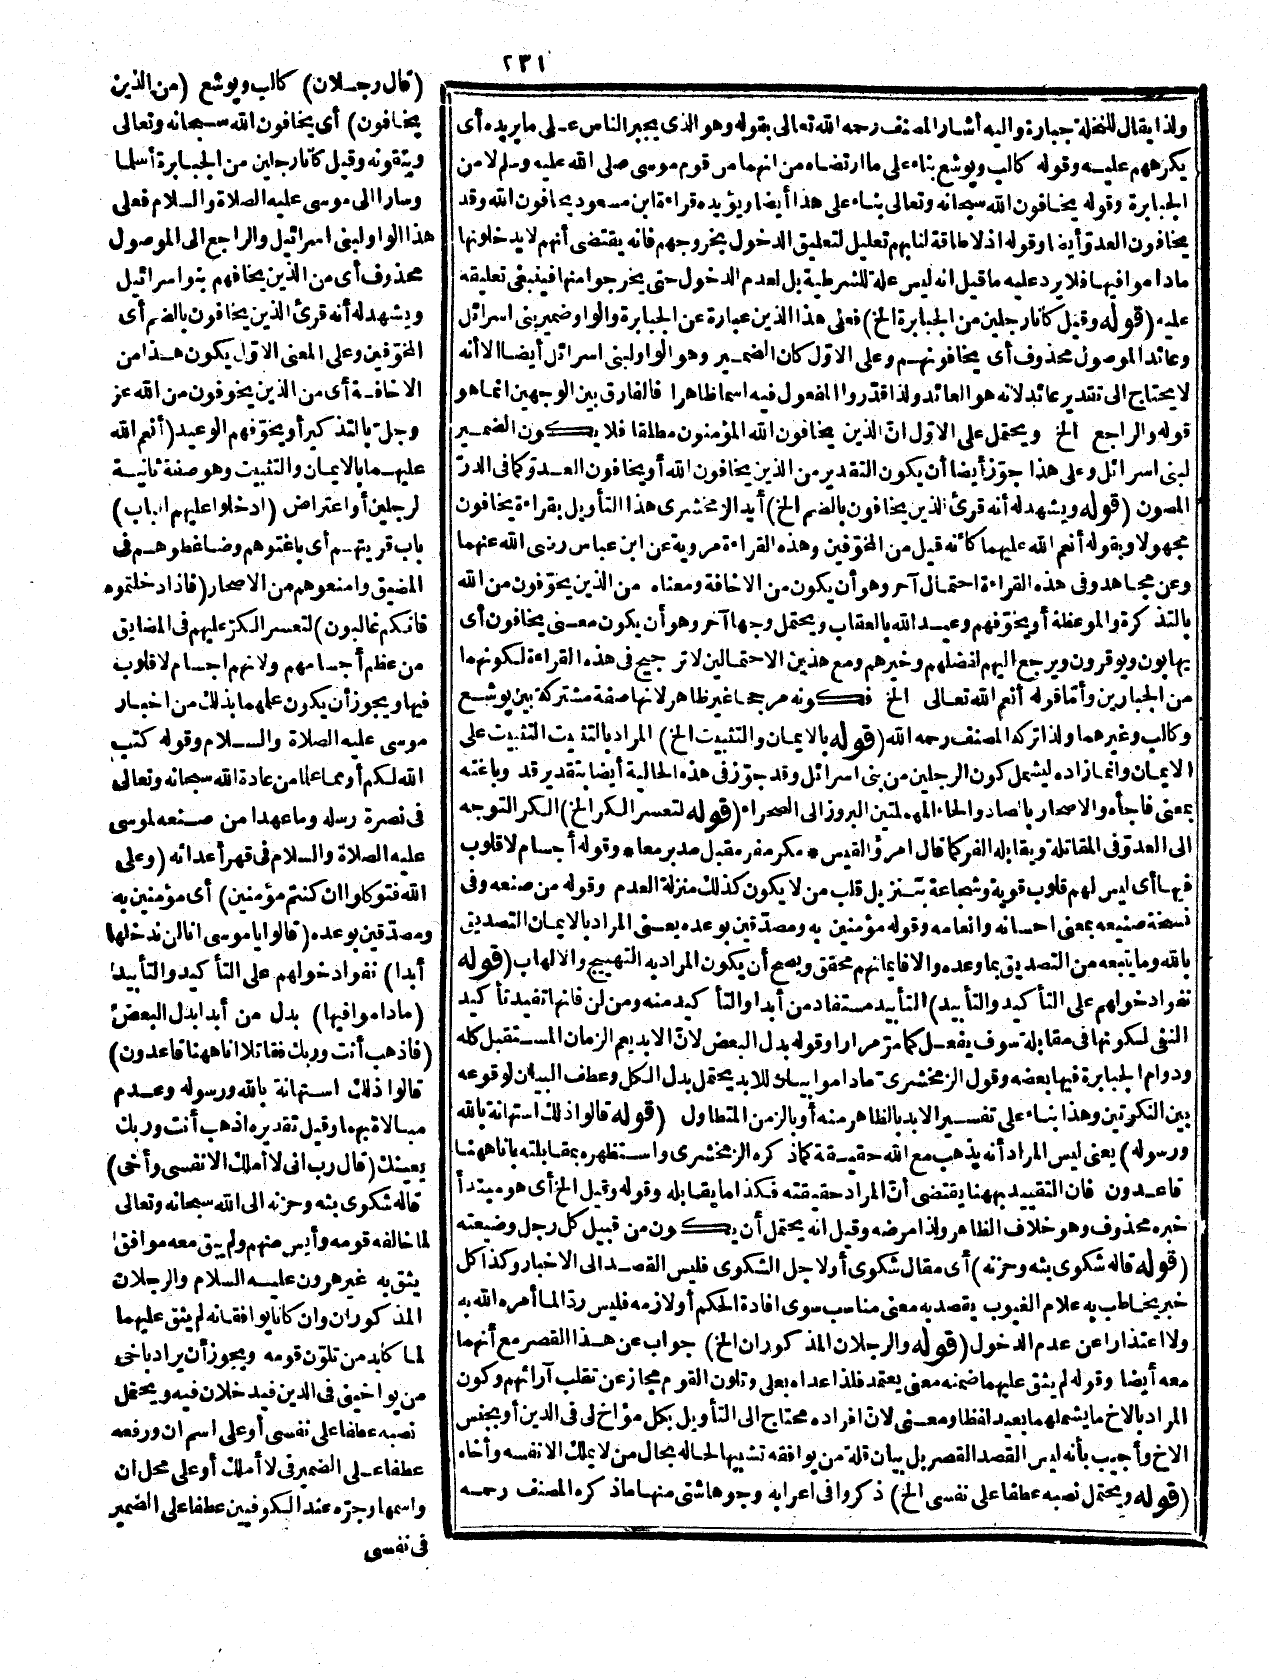 ٢٣١
ولذا يقال للنخلة جبارة واليه أشار المصنف رحمه الله تعالى بقوله وهو الذى يجبر الناس على ما يريده أى
يكرههم عليه وقوله كالب ويوشع بناء على ما ارتضاه من انهما من قوم موسى صلى الله عليه وسلم لا من
الجبابرة وقوله يخافون الله سبحانه وتعالى بناء على هذا أيضا ويؤيده قراءة ابن مسعود يخافون الله وقد
يخافون العدو أيضا وقوله اذ لا طاقة لنا بهم تعليل لتعليق الدخول بخروجهم فانه يقتضى أنهم لا يدخلونها
ما داموا فيها فلا يرد عليه ما قيل انه ليس علة للشرطية بل لعدم الدخول حتى يخرجوا منها فينبغى تعليقه
عليه (قوله وقيل كانا رجلين من الجبابرة الخ) فعلى هذا الذين عبارة عن الجبابرة والواو ضمير بنى اسرائل
وعائد الموصول محذوف أى يخافونهم وعلى الاوّل كان الضمير وهو الواو لبنى اسرائل أيضا الا أنه
لا يحتاج الى تقدير عائد لانه هو العائد ولذا قدّروا المفعول فيه اسما ظاهرا فالفارق بين الوجهين انما هو
قوله والراجع الخ ويحتمل على الاوّل انّ الذين يخافون الله المؤمنون مطلقا فلا يكون الضمير
لبنى اسرائل وعلى هذا جوّز أيضا أن يكون التقدير من الذين يخافون الله أو يخافون العدوّ كما فى الدرّ
المصون (قوله ويشهد له أنه قرئ الذين يخافون بالضم الخ) أيد الزمخشرى هذا التأويل بقراءة يخافون
مجهولا وبقوله أنعم الله عليهما كأنه قيل من المخوّفين وهذه القراءة مروية عن ابن عباس رضى الله عنهما
وعن مجاهد وفى هذه القراءة احتمال آخر وهو أن يكون من الاخافة ومعناه من الذين يخوّفون من الله
بالتذكرة والموعظة أو يخوّفهم وعيد الله بالعقاب ويحتمل وجها آخر وهو أن يكون معنى يخافون أى
يهابون ويوقرون ويرجع اليهم لفضلهم وخيرهم ومع هذين الاحتمالين لا ترجيح فى هذه القراءة لكونهما
من الجبارين وأمّا قوله أنعم الله تعالى الخ فكونه مرجحا غير ظاهر لانها صفة مشتركة بين يوشع
وكالب وغيرهما ولذا تركه المصنف رحمه الله (قوله بالايمان والتثبيت الخ) المراد بالتثبيت التثبيت على
الايمان وانما زاده ليشمل كون الرجلين من بنى اسرائل وقد جوّز فى هذه الحالية أيضا بتقدير قد وباغته
بمعنى فاجأه والاصحار بالصاد والحاء المهملتين البروز الى الصحراء (قوله لتعسر الكر الخ) الكر التوجه
الى العدوّ فى المقاتلة ويقابله الفر كما قال امرؤ القيس * مكر مفر مقبل مدبر معا * وقوله أجسام لا قلوب
فيها أى ليس لهم قلوب قوية وشجاعة بتنزيل قلب من لا يكون كذلك منزلة العدم وقوله من صنعه وفى
نسخة صنيعه بمعنى احسانه وانعامه وقوله مؤمنين به ومصدّقين بوعده يعنى المراد بالايمان التصديق
بالله وما يتبعه من التصديق بما وعده والا فايمانهم محقق ويصح أن يكون المراد به التهييج والالهاب (قوله
نفوا دخولهم على التأكيد والتأبيد) التأبيد مستفاد من أبدا والتأكيد منه ومن لن فانها تفيد تأكيد
النفى لكونها فى مقابلة سوف يفعل كما مرّ مرارا وقوله بدل البعض لانّ الابد يعم الزمان المستقبل كله
ودوام الجبابرة فيها بعضه وقول الزمخشرىّ ما داموا بيان للابد يحتمل بدل الكل وعطف البيان لوقوعه
بين النكرتين وهذا بناء على تفسير الابد بالظاهر منه أو بالزمن المتطاول (قوله قالوا ذلك استهانة بالله
ورسوله) يعنى ليس المراد أنه يذهب مع الله حقيقة كما ذكره الزمخشرى واستظهره بمقابلته بانا ههنا
قاعدون فان التقييد بههنا يقتضى أنّ المراد حقيقته فكذا ما يقابله وقوله وقيل الخ أى هو مبتدأ
خبره محذوف وهو خلاف الظاهر ولذا مرضه وقيل انه يحتمل أن يكون من قبيل كل رجل وضيعته
(قوله قاله شكوى بثه وحزنه) أى مقال شكوى أو لاجل الشكوى فليس القصد الى الاخبار وكذا كل
خبر يخاطب به علام الغيوب يقصد به معنى مناسب سوى افادة الحكم أو لازمه فليس ردّا لما أمره الله به
ولا اعتذارا عن عدم الدخول (قوله والرجلان المذكوران الخ) جواب عن هذا القصر مع أنهما
معه أيضا وقوله لم يثق عليهما ضمنه معنى يعتمد فلذا عداه بعلى وتلون القوم مجاز عن تقلب آرائهم وكون
المراد بالاخ ما يشملهما بعيد لفظا ومعنى لانّ افراده محتاج الى التأويل بكل مؤاخ لى فى الدين أو بجنس
الاخ وأجيب بأنه ليس القصد القصر بل بيان قلة من يوافقه تشبيها لحاله بحال من لا يملك الا نفسه وأخاه
(قوله ويحتمل نصبه عطفا على نفسى الخ) ذكروا فى اعرابه وجوها شتى منها ما ذكره المصنف رحمه
(قال رجلان) كالب ويوشع (من الذين
يخافون) أى يخافون الله سبحانه وتعالى
ويتقونه وقيل كانا رجلين من الجبابرة أسلما
وسارا الى موسى عليه الصلاة والسلام فعلى
هذا الواو لبنى اسرائيل والراجع الى الموصول
محذوف أى من الذين يخافهم بنو اسرائيل
ويشهد له أنه قرئ الذين يخافون بالضم أى
المخوّفين وعلى المعنى الاوّل يكون هذا من
الاخافة أى من الذين يخوفون من الله عز
وجلّ بالتذكير أو يخوّفهم الوعيد (أنعم الله
عليهما) بالايمان والتثبيت وهو صفة ثانية
لرجلين أو اعتراض (ادخلوا عليهم الباب)
باب قريتهم أى باغتوهم وضاغطوهم فى
المضيق وامنعوهم من الاصحار (فاذا دخلتموه
فانكم غالبون) لتعسر الكرّ عليهم فى المضايق
من عظم أجسامهم ولانهم اجسام لا قلوب
فيها ويجوز أن يكون علمهما بذلك من اخبار
موسى عليه الصلاة والسلام وقوله كتب
الله لكم أو مما علما من عادة الله سبحانه وتعالى
فى نصرة رسله وما عهدا من صنعه لموسى
عليه الصلاة والسلام فى قهر أعدائه (وعلى
الله فتوكلوا ان كنتم مؤمنين) أى مؤمنين به
ومصدّقين بوعده (قالوا يا موسى انا لن ندخلها
أبدا) نفوا دخولهم على التأكيد والتأبيد
(ما داموا فيها) بدل من أبدا بدل البعض
(فاذهب أنت وربك فقاتلا انا ههنا قاعدون)
قالوا ذلك استهانة بالله ورسوله وعدم
مبالاة بهما وقيل تقديره اذهب أنت وربك
يعينك (قال رب انى لا أملك الا نفسى وأخى)
قاله شكوى بثه وحزنه الى الله سبحانه وتعالى
لما خالفه قومه وأيس منهم ولم يبق معه موافق
يثق به غير هرون عليه السلام والرجلان
المذكوران وان كانا يوافقانه لم يثق عليهما
لما كابد من تلوّن قومه ويجوز أن يراد باخى
من يواخينى فى الدين فيدخلان فيه ويحتمل
نصبه عطفا على نفسى أو على اسم ان ورفعه
عطفا على الضمير فى لا أملك أو على محل ان
واسمها وجرّه عند الكوفيين عطفا على الضمير
فى نفسى